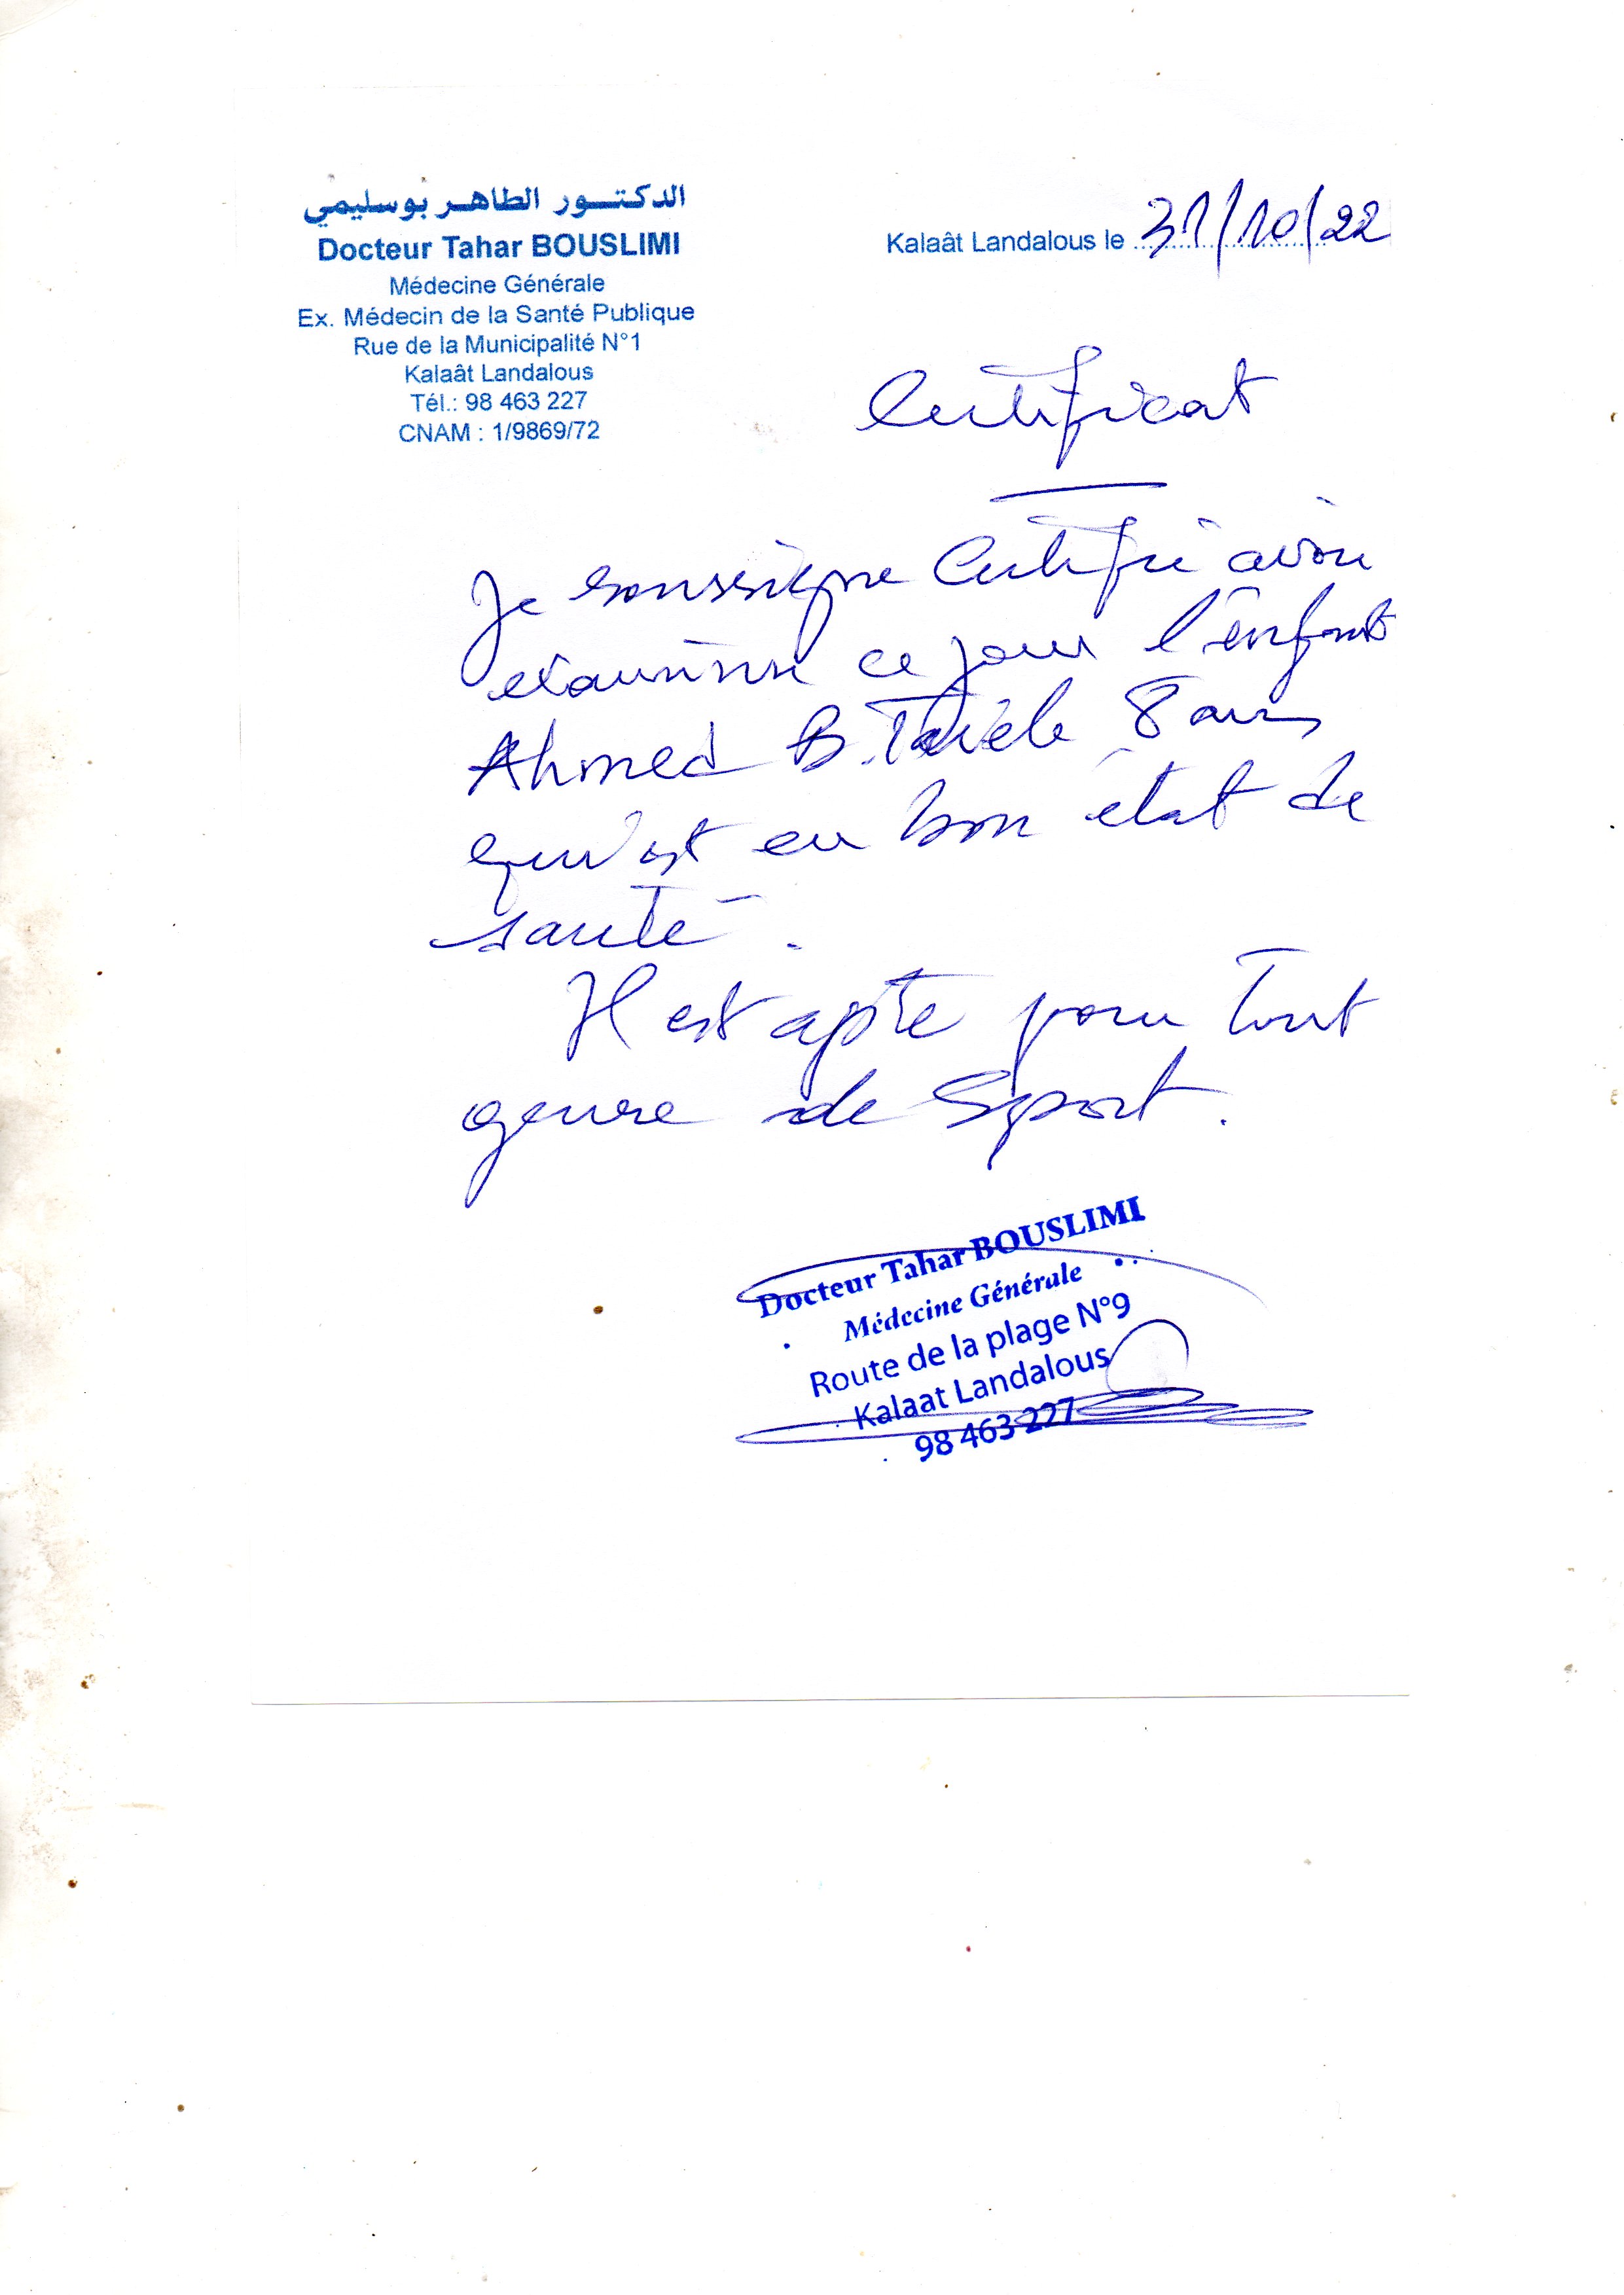 الدكتور الطاهر بوسليمي
Docteur Tahar BOUSLIMI
Médecine Générale
Ex. Médecin de la Santé Publique
Rue de la Municipalité N°1
Kalaât Landalous
Tél.: 98 463 227
CNAM : 1/9869/72
Kalaât Landalous le 31/10/22
Certificat
Je soussigne Certifie avoir
examiner ce jour l'enfant
Ahmed B. 8 ans
qui est en bon état de
santé.
Il est apte pour tout
genre de Sport.
Docteur Tahar BOUSLIMI
Médecine Générale
Route de la plage N°9
Kalaat Landalous
98 463 227